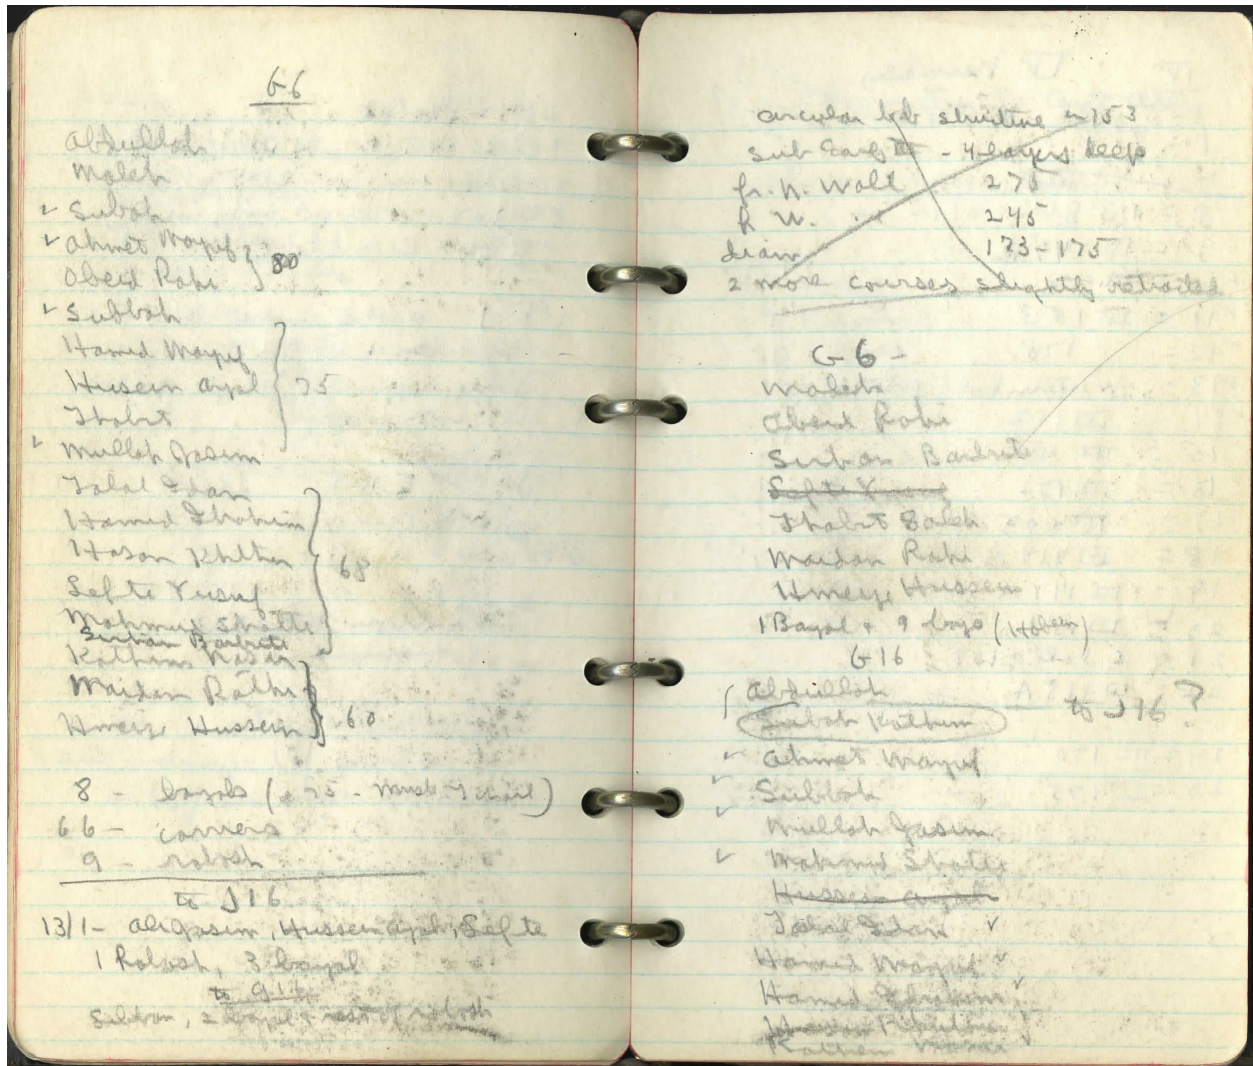 G6
Abdullah
Maleh
✓ Subah
✓ Ahmet Mayuf } 80
Obeid Rahi
✓ Subbah
Hamid Mayuf
Husein Ayal } 75
Thabit
✓ Mullah Jasim
Talal Idan
Hamid Ibrahim
Hasan Khlthu
Lefte Yusuf } 68
Mahmud Shatti
Surban Barbuti
Kathim Nasar
Maidan Rathi
Hmeye Hussein } 60
8 - bayals (@ 75 -
66 - carriers
9 - robosh
to J16
13/1 - Ali Jasim, Hussein Ayal, Lefte
1 Robosh, 3 bayal
to G16
Subban, 2 bayal + rest of robosh
circular lib structure - 153
Sub - 4 layers deep
fr. N. Wall 275
fr W. " 245
diam 173-175
2 more courses slightly retracted
G6 -
Maleh
Obeid Rahi
Surban Barbuti
Lefte Yusuf
Thabit Saleh
Maidan Rahi
Hmeye Hussein
1 Bayal + 9 boys
G16
Abdullah
Subah Kathum to J16?
✓ Ahmet Mayuf
✓ Subbah
✓ Mullah Jasim
✓ Mahmud Shatti
Hussein Ayal
Talal Idan ✓
Hamid Mayuf ✓
Hamid Ibrahim ✓
Kathim Nasar ✓